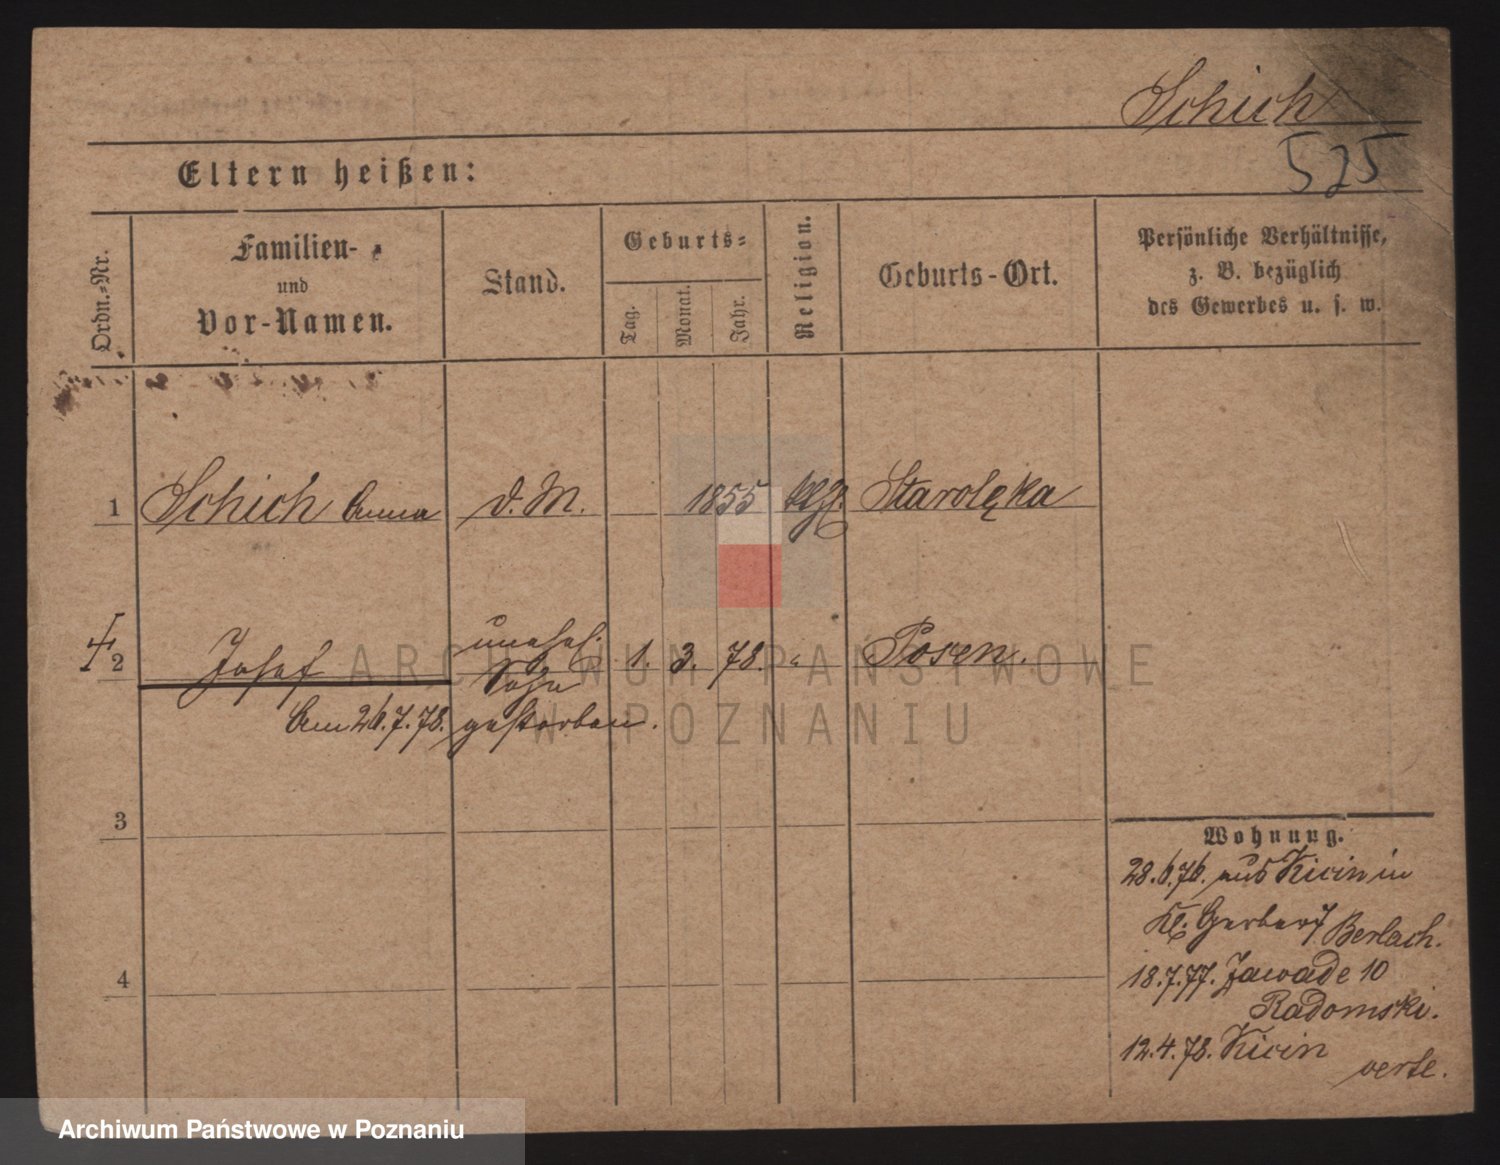 Schich
525
Eltern heißen:
Ordn.-Nr.
Familien-
und
Vor-Namen.
Stand.
Geburts-
Tag.
Monat.
Jahr.
Religion.
Geburts-Ort.
Persönliche Verhältnisse,
z. B. bezüglich
des Gewerbes u. s. w.
1 Schich Anna d. M. 1855 Starolęka
2 Josef unehel. Sohn 1. 3. 78. " Posen.
Am 26.7.78. gestorben.
3
4
Wohnung.
28.6.76. aus Kicin in
Kl. Gerberst Berlach.
18.7.77. Zawade 10
Radomski.
12.4.78. Kicin
verte.
ARCHIWUM PAŃSTWOWE
W POZNANIU
Archiwum Państwowe w Poznaniu